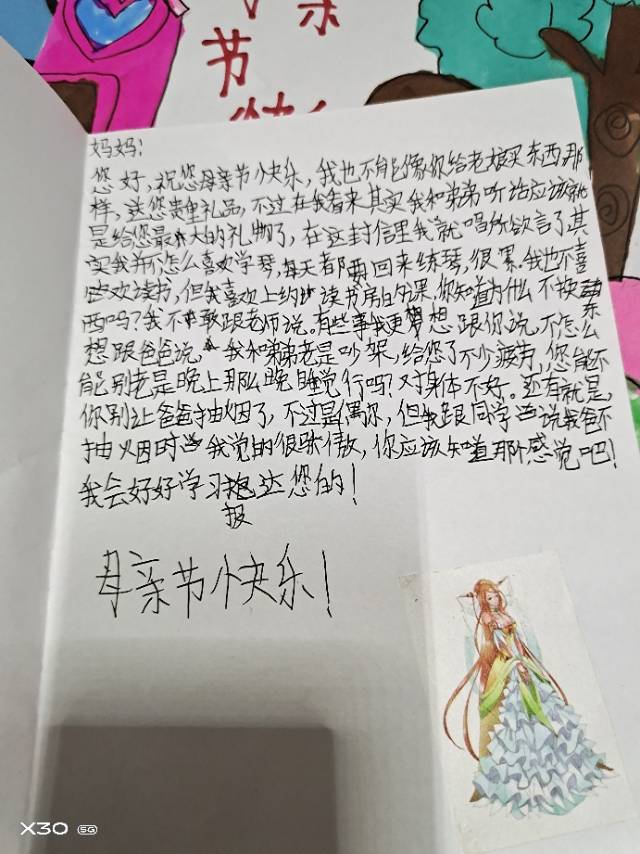 亲
节
快乐
妈妈:
您好,祝您母亲节快乐,我也不能像你给老娘买东西那
样,送您贵重礼品,不过在我看来其实我和弟弟听话应该就
是给您最大的礼物了,在这封信里我就唱所欲言了其
实我并不怎么喜欢学琴,每天都要回来练琴,很累。我也不喜
欢读书,但我喜欢上约读书房的课,你知道为什么不按
东西吗?我不敢跟老师说。有些事我更想想跟你说,不怎么
想跟爸爸说,我和弟弟老是吵架,给您了不少疲劳,您能不
能别老是晚上那么晚睡觉行吗?对身体不好。还有就是,
你别让爸爸抽烟了,不过是偶尔,但我跟同学说我爸不
抽烟时我觉的很骄傲,你应该知道那个感觉吧!
我会好好学习报达您的!
母亲节快乐!
X30 5G